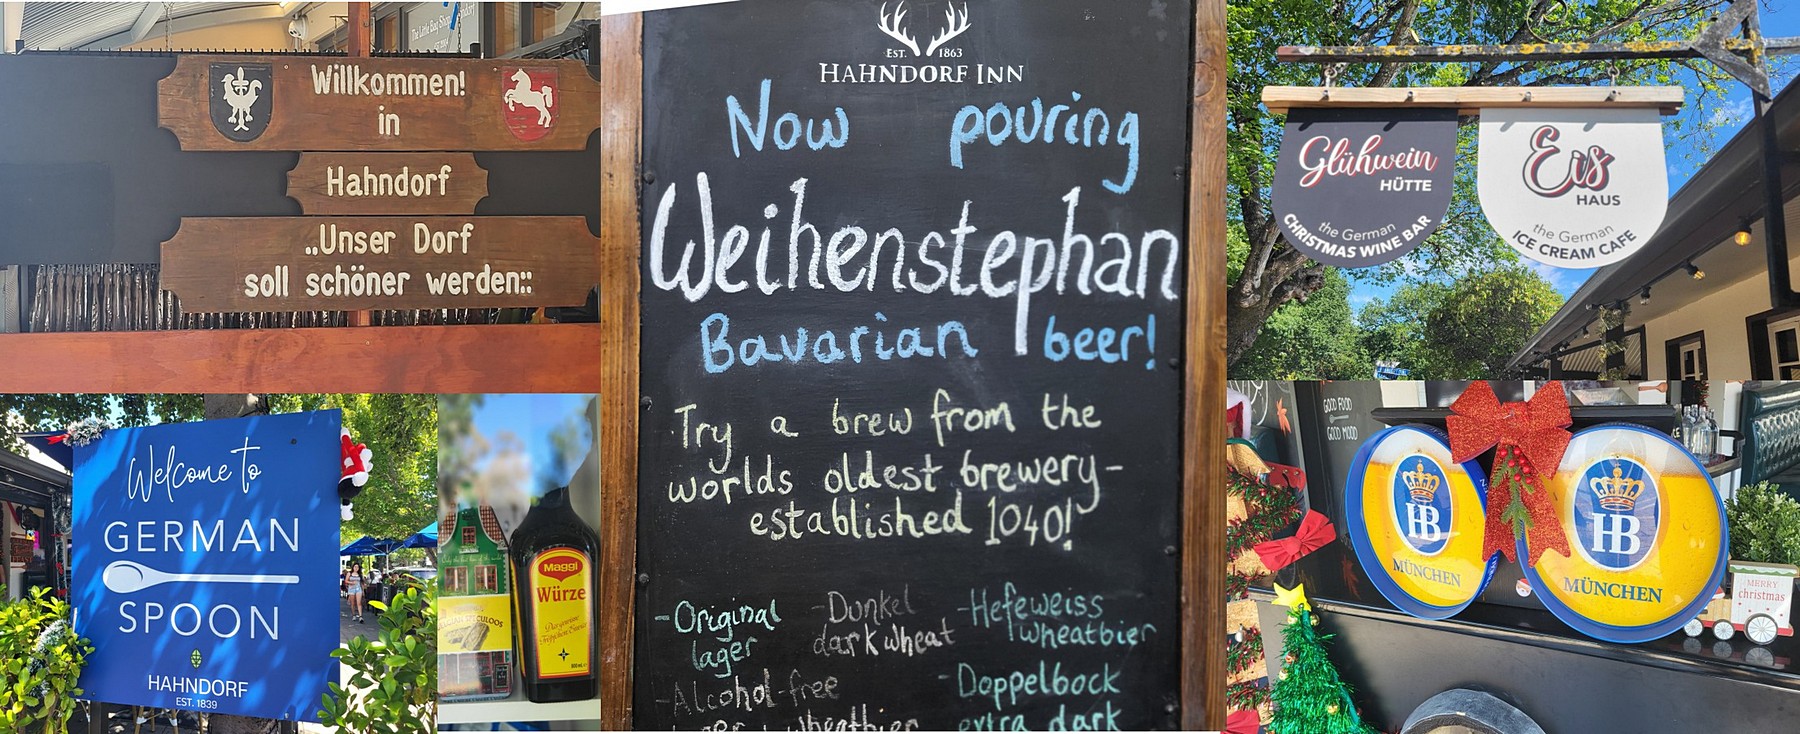 Willkommen!
in
Hahndorf
„Unser Dorf
soll schöner werden::
Welcome to
GERMAN
SPOON
HAHNDORF
EST. 1839
Maggi
Würze
EST. 1863
HAHNDORF INN
Now pouring
Weihenstephan
Bavarian beer!
Try a brew from the
worlds oldest brewery-
established 1040!
-Original
lager
-Dunkel
dark wheat
-Hefeweiss
wheatbier
-Alcohol-free
lager + wheatbier
-Doppelbock
extra dark
Glühwein
HÜTTE
the German
CHRISTMAS WINE BAR
Eis
HAUS
the German
ICE CREAM CAFE
GOOD FOOD
GOOD MOOD
HB
MÜNCHEN
HB
MÜNCHEN
MERRY
christmas